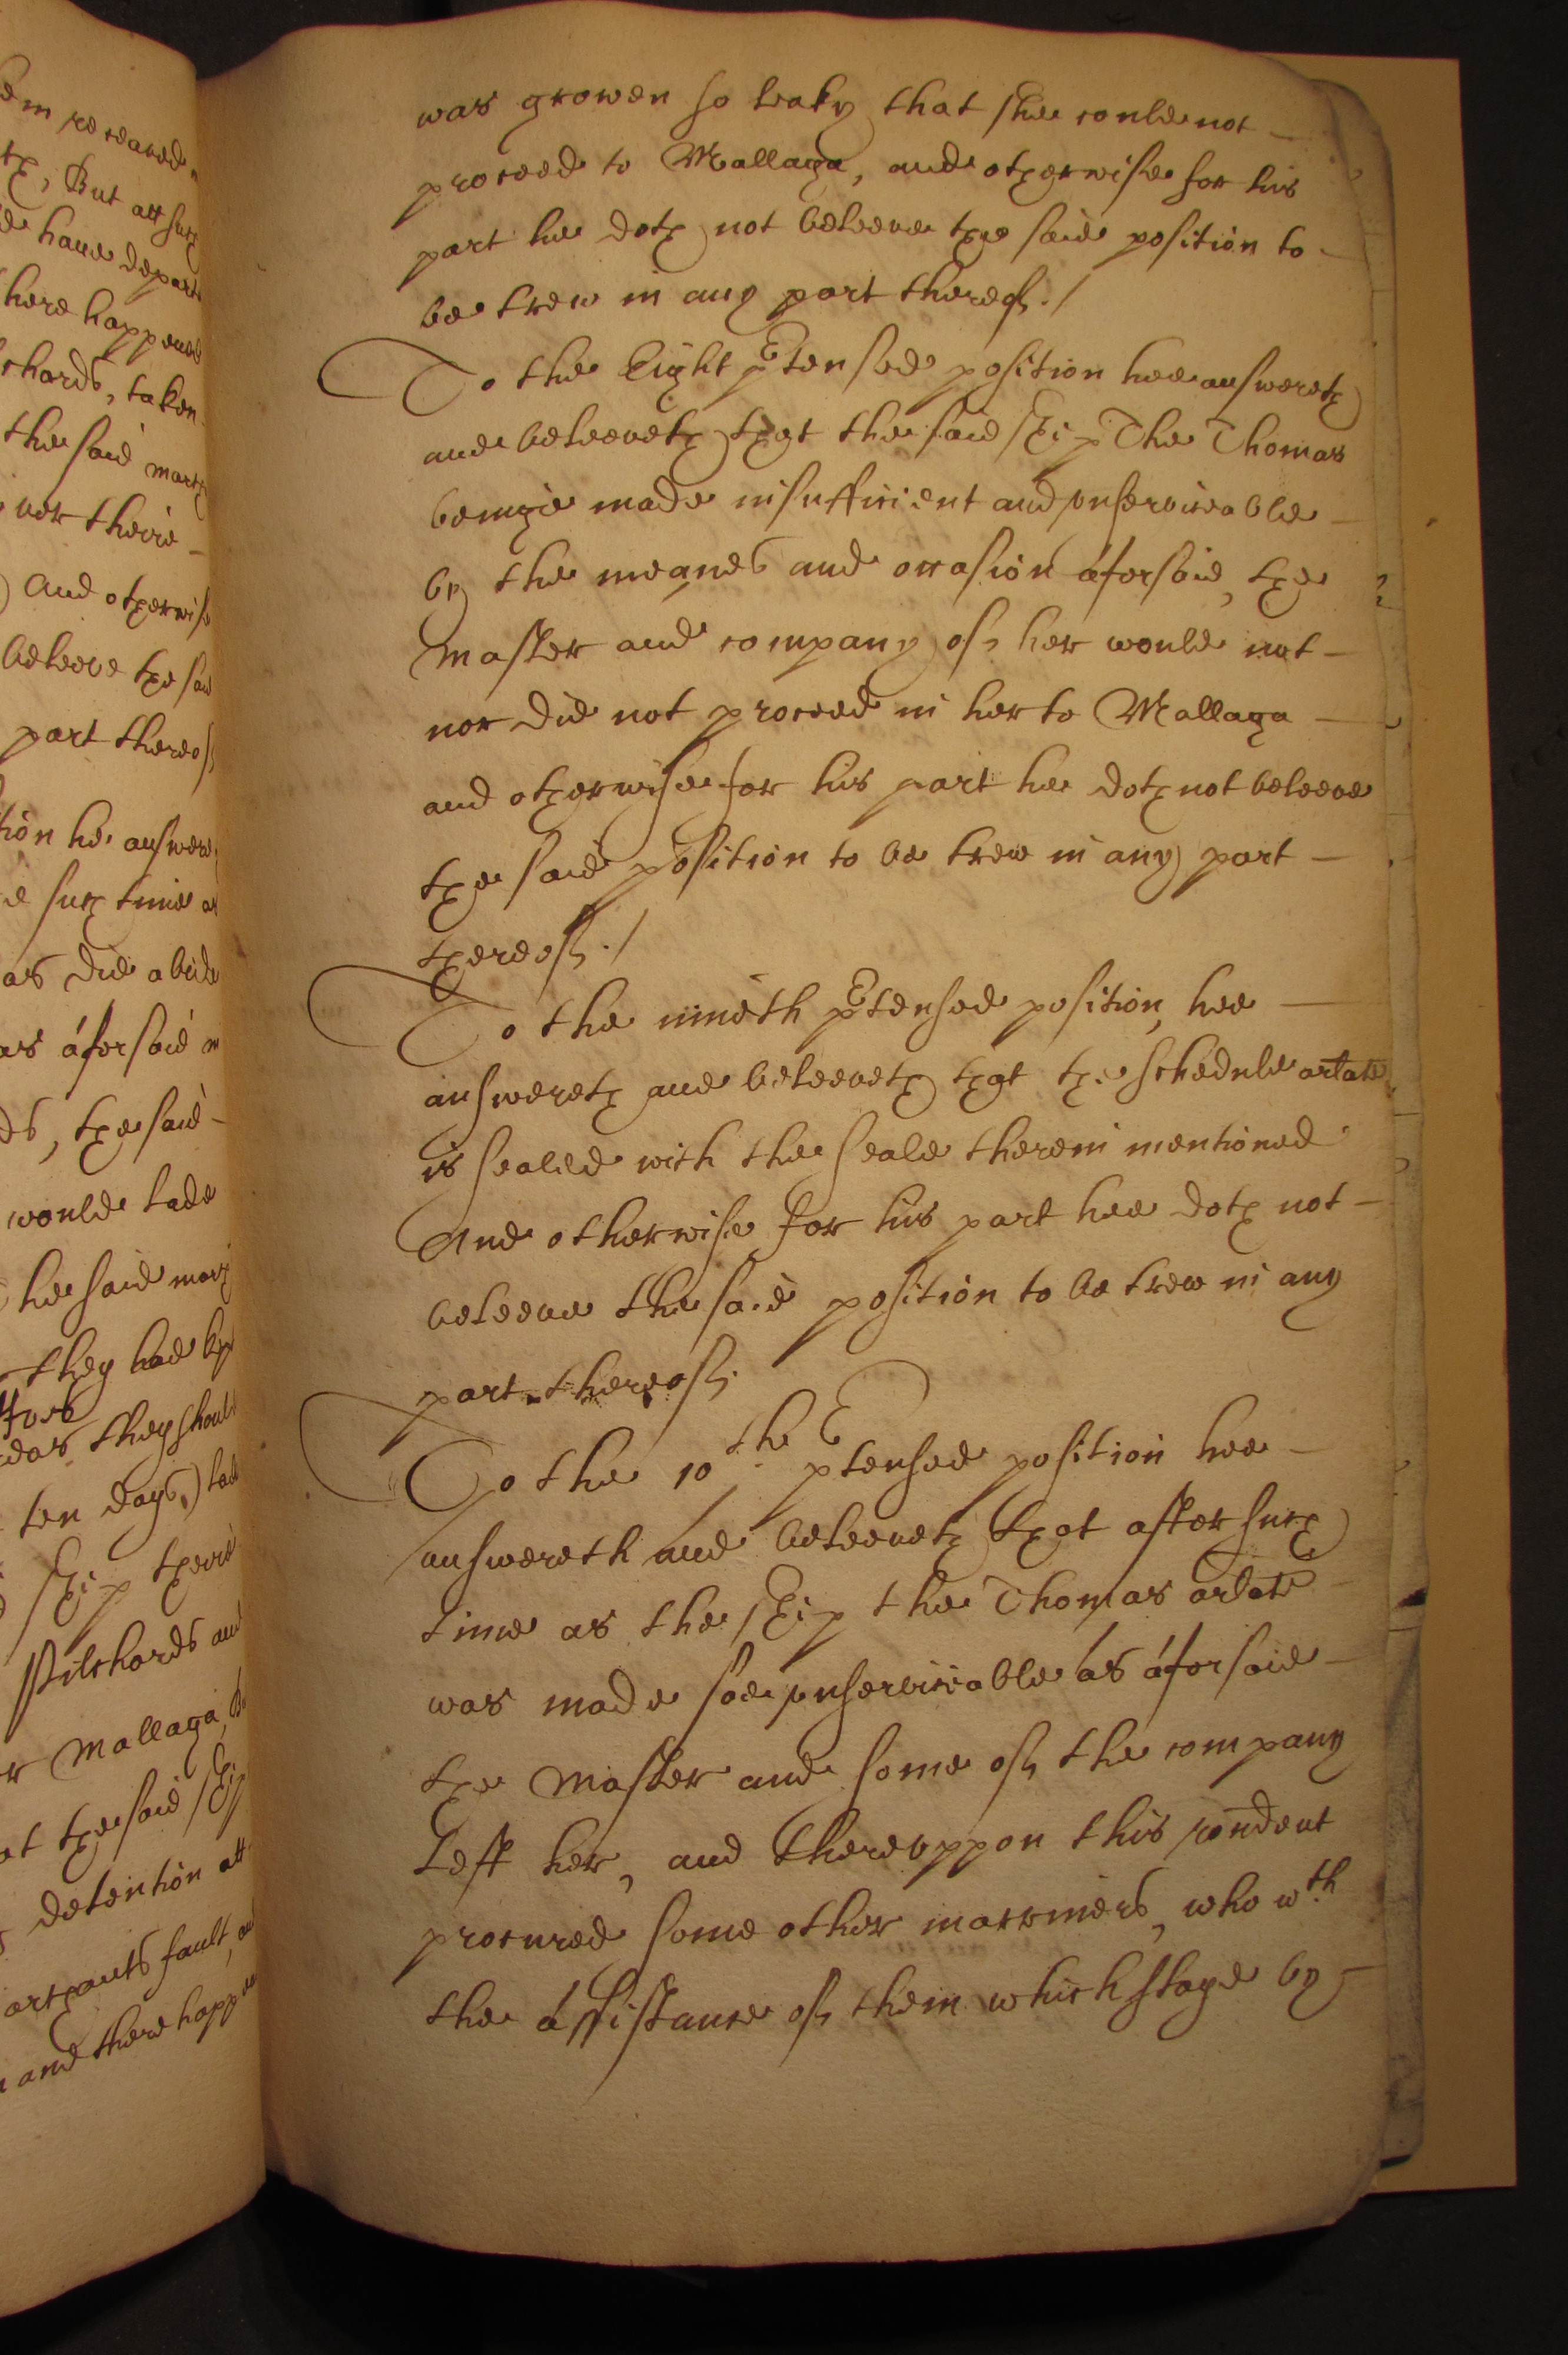 em receaved
th, But att such
have depart
here happened
chards, taken
the said march
nor theire
and otherwise
beleeve the said
part thereof
tion he answere
such time as
as did abide
as áforsaid
the said
woulde lade
he said march
they had
they should
ten days,) lade
ship theire
Pilchards and
Mallaga,
at the said ship
detention att
fault,
and there happen
was growen so leaky that shee coulde not
proceed to Mallaga, and otherwise for his
part he doth not beleeve the said position to
be trew in any part thereof./
To the Eight ptensed position hee answereth
and beleeveth that the said ship The Thomas
beinge made insufficient and vnserviceable
by the meanes and occasion áforsaid, the
Master and company of her woulde not
nor did not proceed in her to Mallaga
and otherwise for his part he doth not beleeve
the said position to be trew in any part
thereof./
To the nineth ptensed position, hee
answereth and beleeveth that the schedule arlate
is sealed with the seale therein mentioned
And otherwise for his part hee doth not
beleeve the said position to be trew in any
part thereof.
To the 10th ptensed position hee
answereth and beleeveth that after such
time as the ship the Thomas arlate
was made soe vnserviceable as áforsaid
the Master and some of the company
left her, and therevppon this rondent
procured some other marriners, who wth
the ássistance of them which stayed by